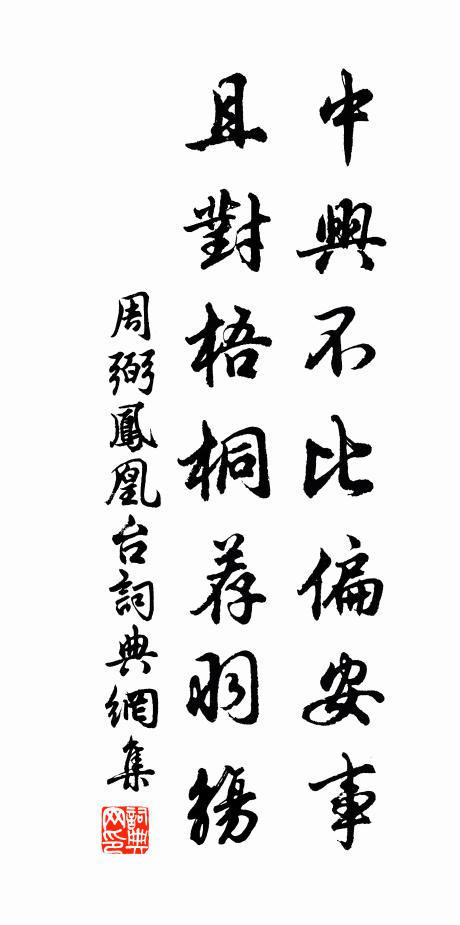 中興不比偏安事
且對梧桐荐羽觴
周弼鳳凰台詞典網集
詞典網印